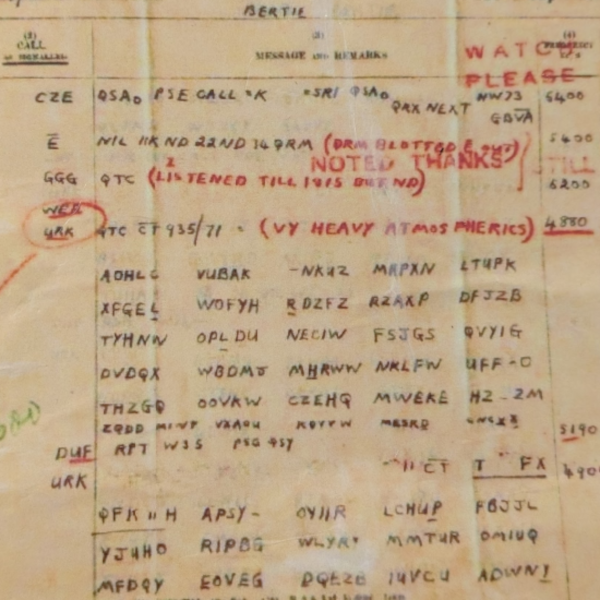 BERTIE
(2) (3) (4)
CALL MESSAGE AND REMARKS WATCH
PLEASE
CZE QSA0 PSE CALL "K "SRI QSA0 QRX NEXT NW73 GBVA 6400
E NIL 11K ND 22ND QRM (QRM BLOTTED E OUT) 5400
NOTED THANKS STILL
GGG QTC (LISTENED TILL 1815 BUT ND) 6200
URK QTC CT 935/71 = (VY HEAVY ATMOSPHERICS) 4880
AOHLC VUBAK -NKUZ MRPXN LTUPK
XFGEL WOFYH RDZFZ RZAXP DFJZB
TYHNW OPLDU NECIW FSJGS QVYIG
DVDQX WBDMJ MHRWW NKLFW UFF-O
THZGQ OOVKW CZEHQ MWEKE HZ-2M
5190
DUF RPT W35 PSG QSY
URK "11 CT T FX 490
QFK11H APSY- OYIIR LCHUP FBJJL
YJUHO RIPBG WLYRY MMTUR OMIUQ
MFDQY EOVEG DQEZB IUVCU ADWNI